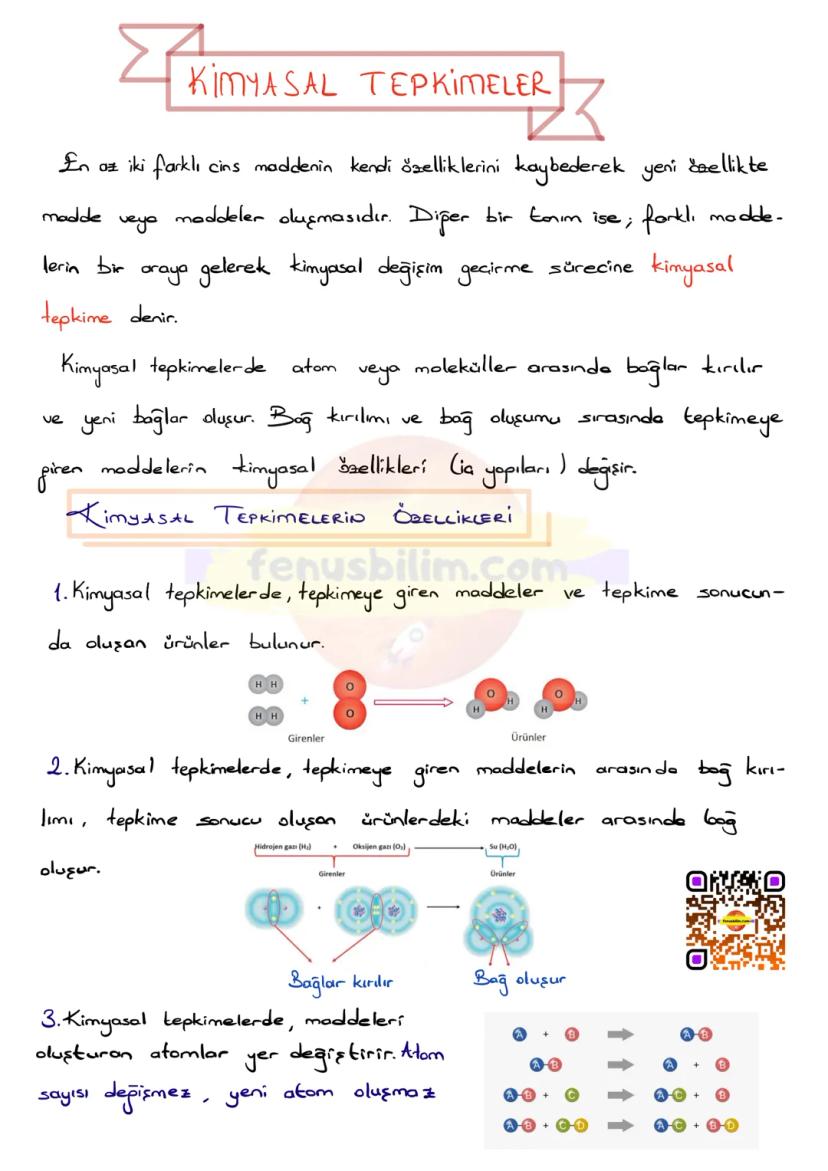 KİMYASAL TEPKİMELER
En az iki farklı cins maddenin kendi özelliklerini kaybederek yeni özellikte
madde veya maddeler oluşmasıdır. Diğer bir tanım ise; farklı madde-
lerin bir araya gelerek kimyasal değişim geçirme sürecine kimyasal
tepkime denir.
Kimyasal tepkimelerde atom veya moleküller arasında bağlar kırılır
ve yeni bağlar oluşur. Bağ kırılımı ve bağ oluşumu sırasında tepkimeye
giren maddelerin kimyasal özellikleri (iç yapıları) değişir.
KİMYASAL TEPKİMELERİN ÖZELLİKLERİ
fenusbilim.com
1. Kimyasal tepkimelerde, tepkimeye giren maddeler ve tepkime sonucun-
da oluşan ürünler bulunur.
H H O O H
H H + O H H H
Girenler Ürünler
2. Kimyasal tepkimelerde, tepkimeye giren maddelerin arasında bağ kırı-
lımı, tepkime sonucu oluşan ürünlerdeki maddeler arasında bağ
oluşur.
Hidrojen gazı (H₂) + Oksijen gazı (O₂) Su (H₂O)
Girenler Ürünler
+
fenusbilim.com
Bağlar kırılır Bağ oluşur
3. Kimyasal tepkimelerde, maddeleri
oluşturan atomlar yer değiştirir. Atom
sayısı değişmez, yeni atom oluşmaz
A + B A B
A B A + B
A B + C A C + B
A B + C D A C + B D